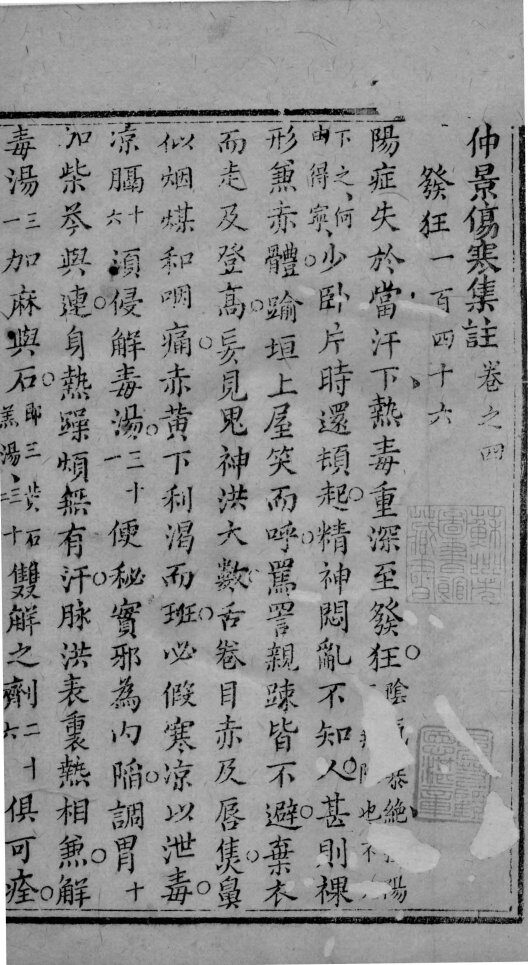 仲景傷寒集註 卷之四
發狂一百四十六
陽症失於當汗下熱毒重深至發狂 陰 暴絶 陽 也 不
下之何由得寧 少卧片時還頓起精神悶亂不知人甚則裸
形兼赤體踰垣上屋笑而呼罵詈親踈皆不避棄衣
而走及登高妄見鬼神洪大數舌卷目赤及唇焦鼻
似烟煤和咽痛赤黄下利渴而班必假寒凉以泄毒
凉膈十六須侵解毒湯三十一便秘實邪為内陷調胃十
加柴芩與連身熱躁煩無有汗脉洪表裏熱相兼解
毒湯三一加麻與石即三黄石羔湯三十二雙解之劑二十六俱可痊